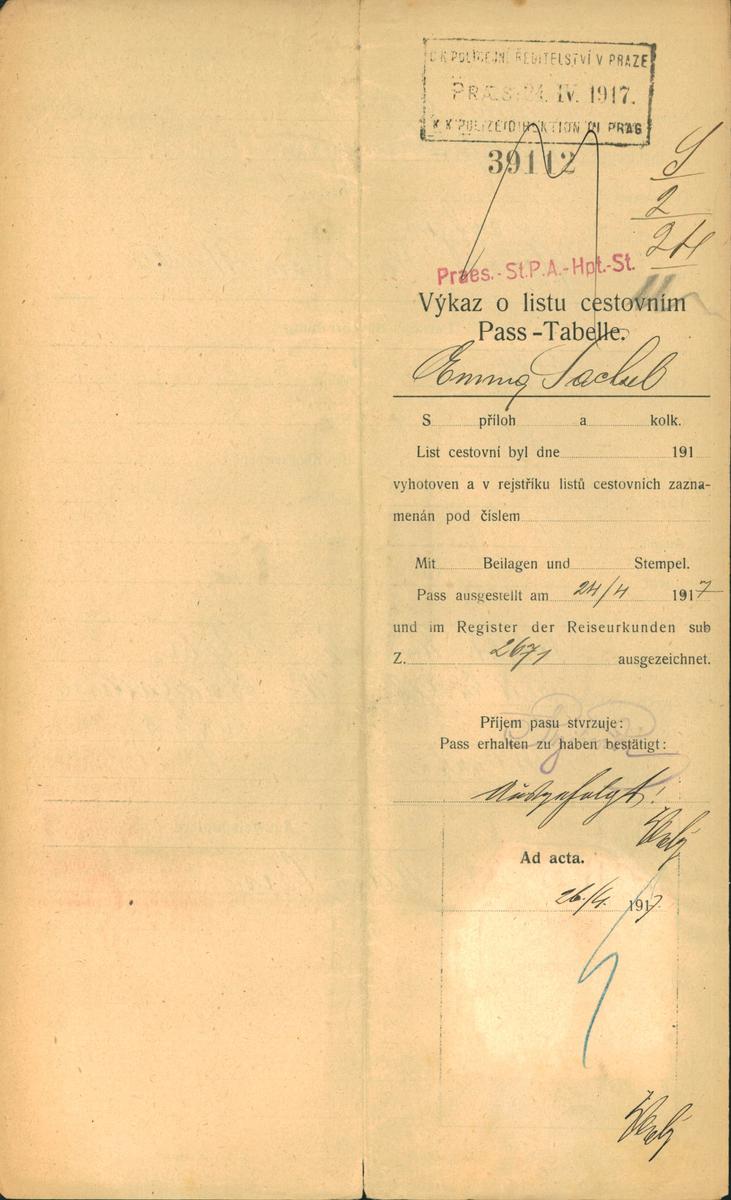 C. K. POLICEJNÍ ŘEDITELSTVÍ V PRAZE
PRÆS. 24. IV. 1917.
K. K. POLIZEIDIREKTION IN PRAG
39112
S
2
24
Praes.-St.P.A.-Hpt.-St.
Výkaz o listu cestovním
Pass-Tabelle.
Emma Sachsel
S příloh a kolk.
List cestovní byl dne 191
vyhotoven a v rejstříku listů cestovních zazna-
menán pod číslem
Mit Beilagen und Stempel.
Pass ausgestellt am 24/4 1917
und im Register der Reiseurkunden sub
Z. 2671 ausgezeichnet.
Příjem pasu stvrzuje:
Pass erhalten zu haben bestätigt:
Ausgefolgt!
Ad acta.
26./4. 1917